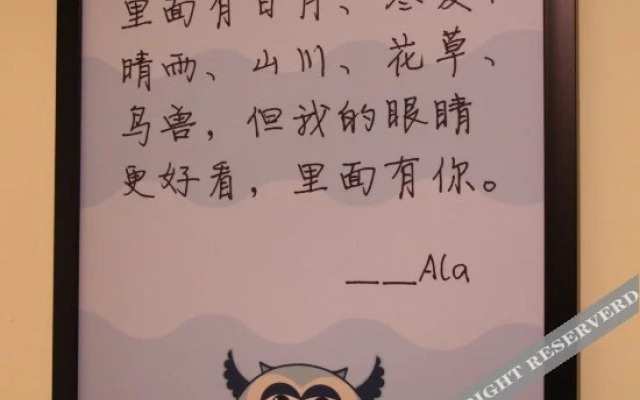 里面有日月、冬夏、
晴雨、山川、花草、
鸟兽，但我的眼睛
更好看，里面有你。
__Ala
RIGHT RESERVERD